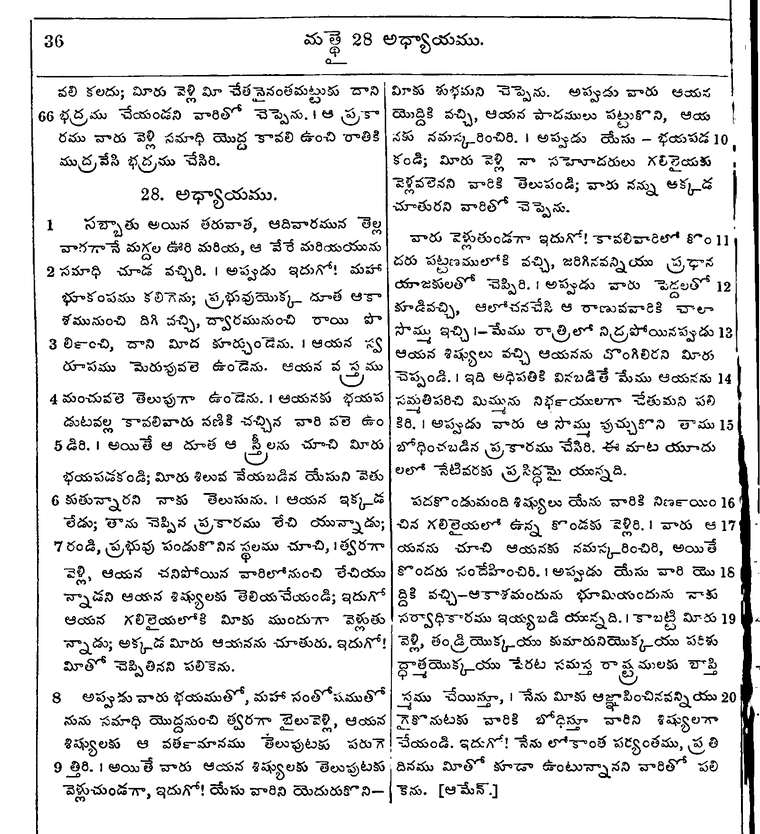 36
మత్థై 28 అధ్యాయము.
వలి కలదు; మీరు వెళ్లి మీ చేతనైనంతమట్టుకు దాని
66 భద్రము చేయండని వారితో చెప్పెను. । ఆ ప్రకా
రము వారు వెళ్లి సమాధి యొద్ద కావలి ఉంచి రాతికి
ముద్రవేసి భద్రము చేసిరి.
28. అధ్యాయము.
1 సబ్బాతు అయిన తరువాత, ఆదివారమున తెల్ల
వారగానే మగ్దల ఊరి మరియ, ఆ వేరే మరియయును
2 సమాధి చూడ వచ్చిరి. । అప్పుడు ఇదుగో! మహా
భూకంపము కలిగెను; ప్రభువుయొక్క దూత ఆకా
శమునుంచి దిగి వచ్చి, ద్వారమునుంచి రాయి పొ
3 ర్లించి, దాని మీద కూర్చుండెను. । ఆయన స్వ
రూపము మెరుపువలె ఉండెను. ఆయన వస్త్రము
4 మంచువలె తెలుపుగా ఉండెను. । ఆయనకు భయప
డుటవల్ల కావలివారు వణికి చచ్చిన వారి వలె ఉం
5 డిరి. । అయితే ఆ దూత ఆ స్త్రీలను చూచి మీరు
భయపడకండి; మీరు శిలువ వేయబడిన యేసుని వెతు
6 కుతున్నారని నాకు తెలుసును. । ఆయన ఇక్కడ
లేడు; తాను చెప్పిన ప్రకారము లేచి యున్నాడు;
7 రండి, ప్రభువు పండుకొనిన స్థలము చూచి, । త్వరగా
వెళ్లి, ఆయన చనిపోయిన వారిలోనుంచి లేచియు
న్నాడని ఆయన శిష్యులకు తెలియచేయండి; ఇదుగో
ఆయన గలిలైయలోకి మీకు ముందుగా వెళ్లుతు
న్నాడు; అక్కడ మీరు ఆయనను చూతురు. ఇదుగో!
మీతో చెప్పితినని పలికెను.
8 అప్పుడు వారు భయముతో, మహా సంతోషముతో
నును సమాధి యొద్దనుంచి త్వరగా బైలువెళ్లి, ఆయన
శిష్యులకు ఆ వర్తమానము తెలుపుటకు పరుగె
9 త్తిరి. । అయితే వారు ఆయన శిష్యులకు తెలుపుటకు
వెళ్లుచుండగా, ఇదుగో! యేసు వారిని యెదురుకొని–
మీకు శుభమని చెప్పెను. అప్పుడు వారు ఆయన
యొద్దికి వచ్చి, ఆయన పాదములు పట్టుకొని, ఆయ
నకు నమస్కరించిరి. । అప్పుడు యేసు – భయపడ 10
కండి; మీరు వెళ్లి నా సహోదరులు గలిలైయకు
వెళ్లవలెనని వారికి తెలుపండి; వారు నన్ను అక్కడ
చూతురని వారితో చెప్పెను.
వారు వెళ్లుతుండగా ఇదుగో! కావలివారిలో కొం 11
దరు పట్టణములోకి వచ్చి, జరిగినవన్నియు ప్రధాన
యాజకులతో చెప్పిరి. । అప్పుడు వారు పెద్దలతో 12
కూడివచ్చి, ఆలోచనచేసి ఆ రాణువవారికి చాలా
సొమ్ము ఇచ్చి।–మేము రాత్రిలో నిద్రపోయినప్పుడు 13
ఆయన శిష్యులు వచ్చి ఆయనను దొంగిలిరని మీరు
చెప్పండి. । ఇది అధిపతికి వినబడితే మేము ఆయనను 14
సమ్మతిపరిచి మిమ్మును నిర్భయులుగా చేతుమని పలి
కిరి. । అప్పుడు వారు ఆ సొమ్ము పుచ్చుకొని తాము 15
బోధించబడిన ప్రకారము చేసిరి. ఈ మాట యూదు
లలో నేటివరకు ప్రసిద్ధమై యున్నది.
పదకొండుమంది శిష్యులు యేసు వారికి నిర్ణయిం 16
చిన గలిలైయలో ఉన్న కొండకు వెళ్లిరి. । వారు ఆ 17
యనను చూచి ఆయనకు నమస్కరించిరి, అయితే
కొందరు సందేహించిరి. । అప్పుడు యేసు వారి యొ 18
ద్దికి వచ్చి–ఆకాశమందును భూమియందును నాకు
సర్వాధికారము ఇయ్యబడి యున్నది. । కాబట్టి మీరు 19
వెళ్లి, తండ్రియొక్కయు కుమారునియొక్కయు పరిశు
ద్ధాత్మయొక్కయు పేరట సమస్త రాష్ట్రములకు బాప్తి
స్మము చేయిస్తూ, । నేను మీకు ఆజ్ఞాపించినవన్నియు 20
గైకొనుటకు వారికి బోధిస్తూ వారిని శిష్యులుగా
చేయండి. ఇదుగో! నేను లోకాంత పర్యంతము, ప్రతి
దినము మీతో కూడా ఉంటున్నానని వారితో పలి
కెను. [ఆమేన్.]